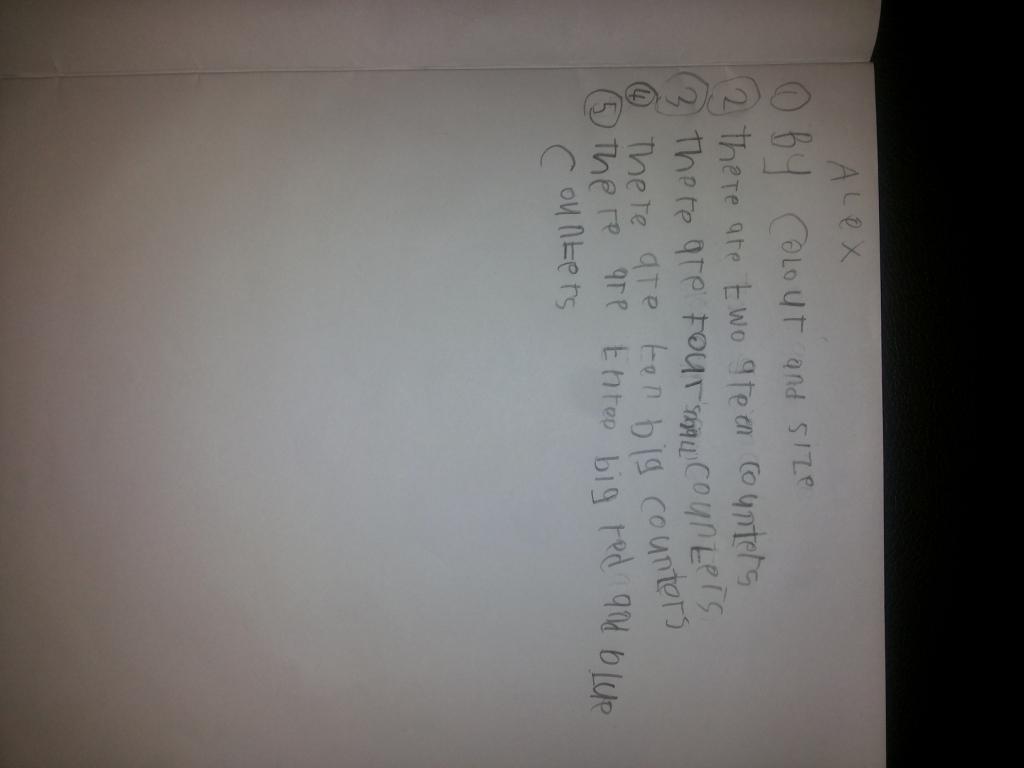 ALex
① By Colour and size
② there are two green counters
③ there are four small counters
④ there are ten big counters
⑤ there are thee big red and blue
Counters